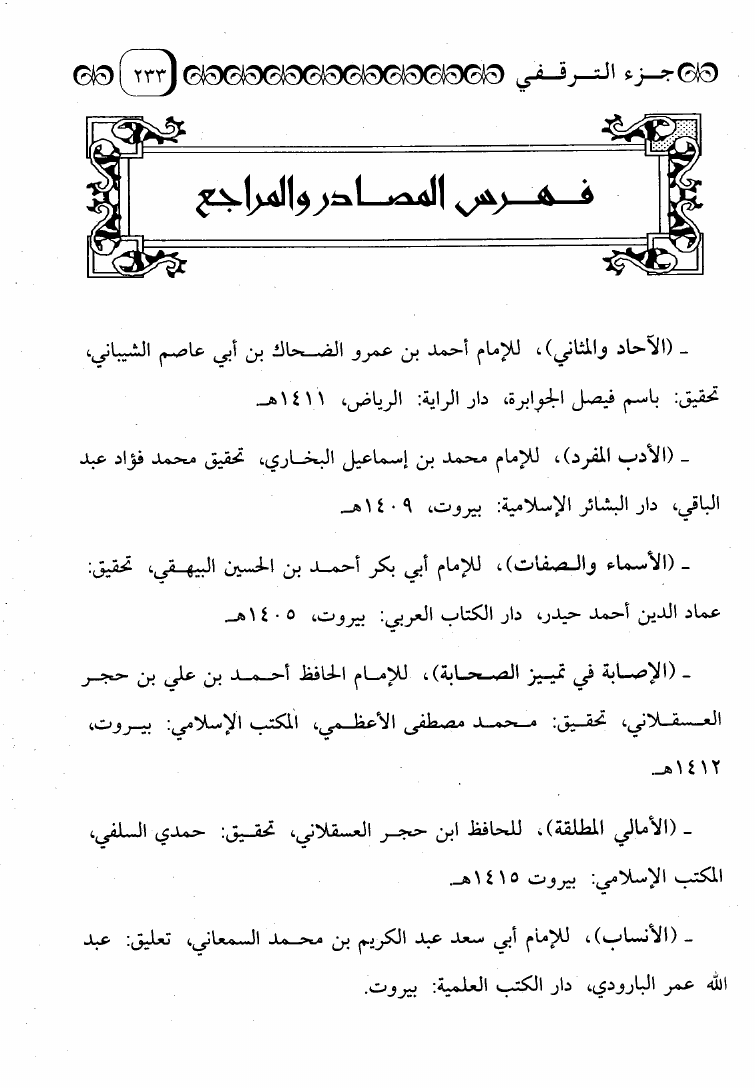 جزء الترقفي ٢٣٣
فهرس المصادر والمراجع
ـ (الآحاد والمثاني)، للإمام أحمد بن عمرو الضحاك بن أبي عاصم الشيباني،
تحقيق: باسم فيصل الجوابرة، دار الراية: الرياض، ١٤١١هـ.
ـ (الأدب المفرد)، للإمام محمد بن إسماعيل البخاري، تحقيق محمد فؤاد عبد
الباقي، دار البشائر الإسلامية: بيروت، ١٤٠٩هـ.
ـ (الأسماء والصفات)، للإمام أبي بكر أحمد بن الحسين البيهقي، تحقيق:
عماد الدين أحمد حيدر، دار الكتاب العربي: بيروت، ١٤٠٥هـ.
ـ (الإصابة في تمييز الصحابة)، للإمام الحافظ أحمد بن علي بن حجر
العسقلاني، تحقيق: محمد مصطفى الأعظمي، المكتب الإسلامي: بيروت،
١٤١٢هـ.
ـ (الأمالي المطلقة)، للحافظ ابن حجر العسقلاني، تحقيق: حمدي السلفي،
المكتب الإسلامي: بيروت ١٤١٥هـ.
ـ (الأنساب)، للإمام أبي سعد عبد الكريم بن محمد السمعاني، تعليق: عبد
الله عمر البارودي، دار الكتب العلمية: بيروت.